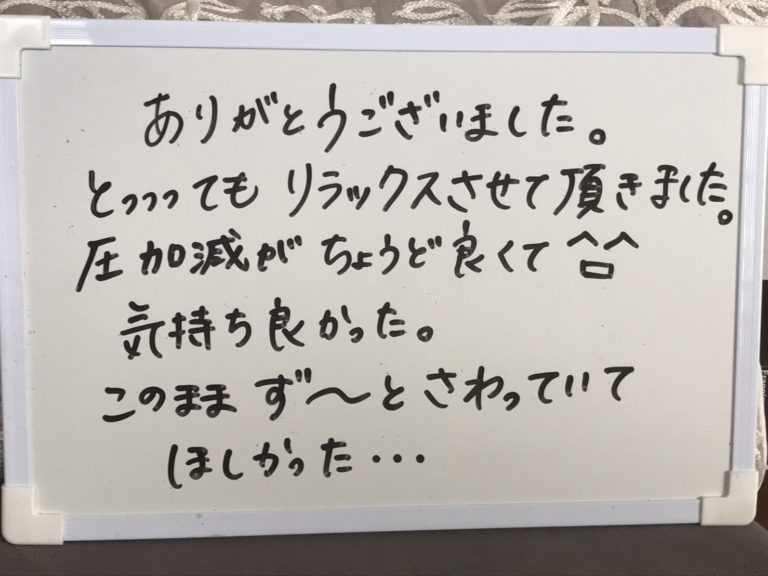 ありがとうございました。
とっっっても リラックスさせて頂きました。
圧加減が ちょうど良くて ^ロ^
気持ち良かった。
このまま ず〜と さわっていて
ほしかった・・・